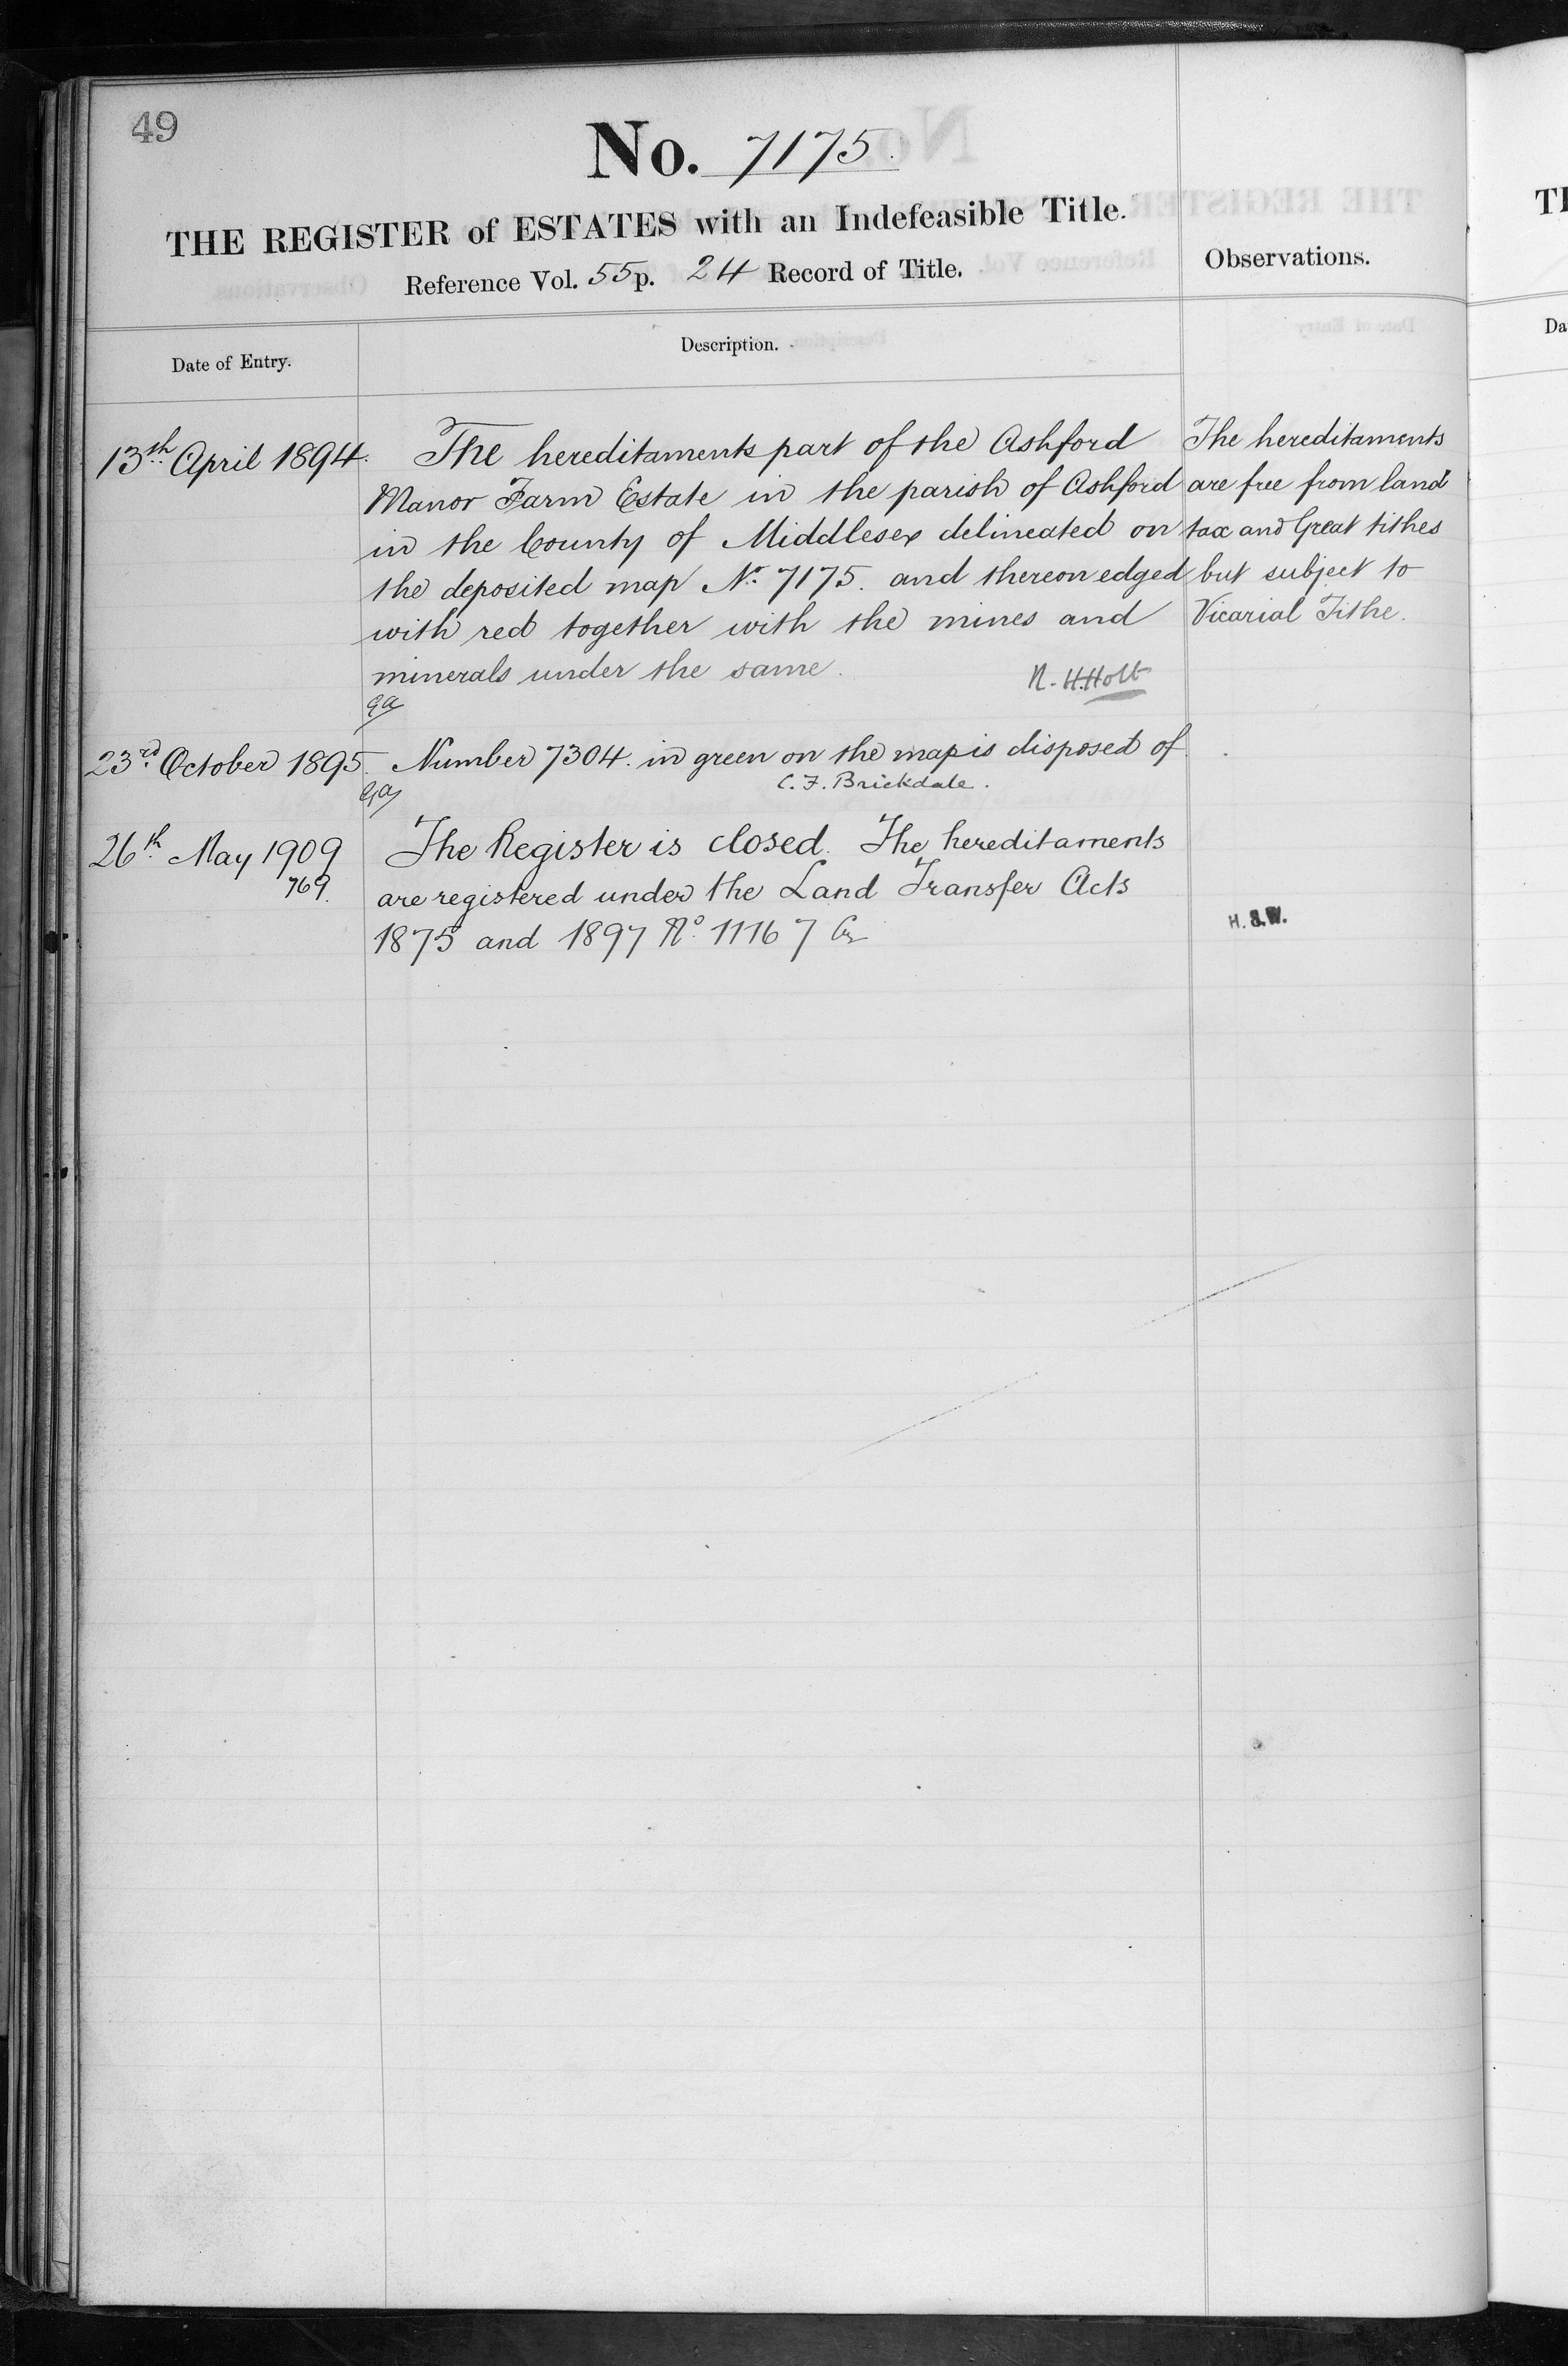 49
No. 7175.
THE REGISTER of ESTATES with an Indefeasible Title.
Reference Vol. 55 p. 24 Record of Title.
Observations.
Date of Entry.
Description.
13th April 1894.
The hereditaments part of the Ashford
Manor Farm Estate in the parish of Ashford
in the County of Middlesex delineated on
the deposited map No. 7175. and thereon edged
with red together with the mines and
minerals under the same.
The hereditaments
are free from land
tax and Great tithes
but subject to
Vicarial Tithe.
R. H. Holt
23rd October 1895.
Number 7304. in green on the map is disposed of.
C. F. Brickdale.
26th May 1909
769.
The Register is closed. The hereditaments
are registered under the Land Transfer Acts
1875 and 1897 No. 111167
H. S. W.
TH
Da